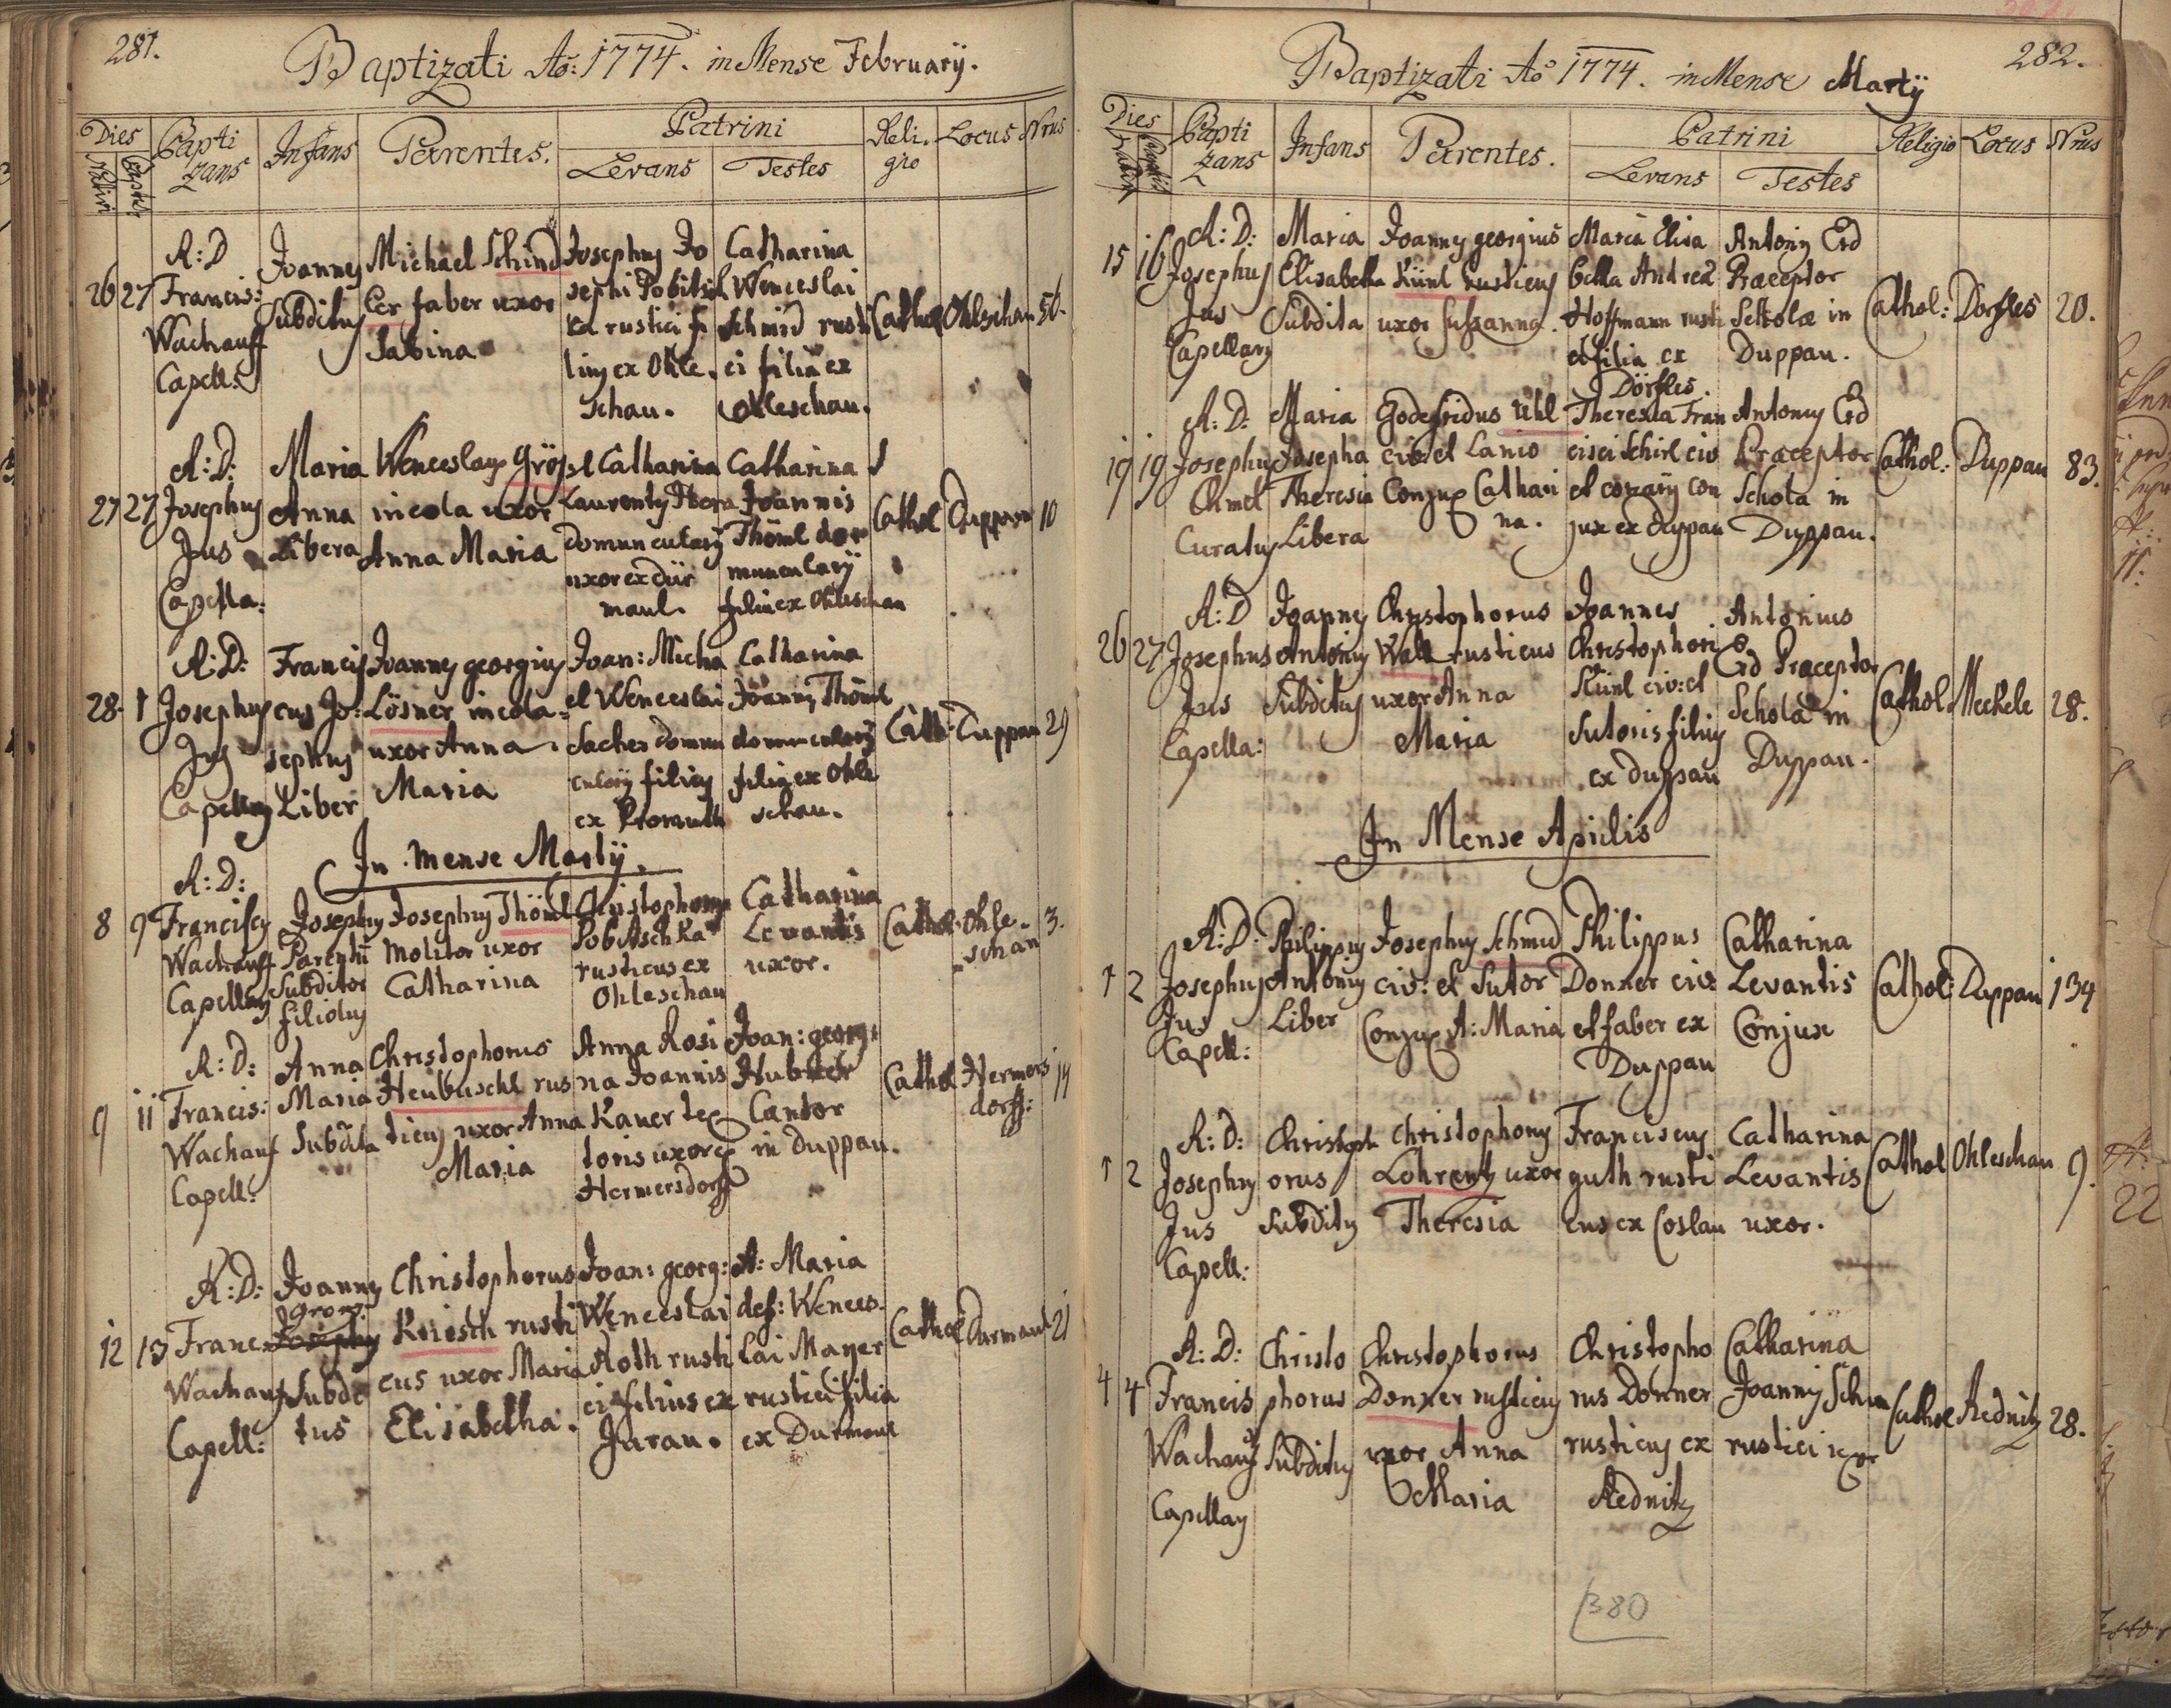 281.
Baptizati Aõ: 1774. in Mense February.
Dies
Bapti
zans
Infans
Parentes.
Patrini
Levans
Testes
Reli.
gio
Locus
Nrus
26 27
R: D
Francis:
Wachauff
Capell:
Joannes
Subditus
Michael Schind
ler faber uxor
Sabina
Josephus Jo
sephi Pobitsch
ka rustici fi
lius ex Ohle.
schau.
Catharina
Wenceslai
Schmid rusti
ci filia ex
Ohleschau.
Cathol
Ohleschau
56.
27 27
R: D:
Josephus
Jus
Capella:
Maria
Anna
Libera
Wenceslaus Grösl
incola uxor
Anna Maria
Catharina
Laurenty
domuncularÿ
uxor ex dür
maul.
Catharina
Joannis
Thöml do
muncularÿ
filia ex Ohleschau
Cathol
Duppau
10
28. 1
R: D:
Josephus
Jus
Capellanus
Francis
cus Jo:
sephus
Liber
Joannes georgius
Lösner incola
uxor Anna
Maria
Joan: Micha
el Wenceslai
Sacher domun
cularÿ filius
ex Promuth
Catharina
Joannis Thöml
domuncularÿ
filia ex Ohle
schau.
Cath:
Duppau
29
In Mense Martÿ.
8 9
R: D:
Franciscus
Wachauff
Capellanus
Josephus
Parentũ
Subditor
filiolus
Josephus Thöml
Molitor uxor
Catharina
Christophorus
Pobitschka
rusticus ex
Ohleschau
Catharina
Levantis
uxor.
Cathol.
Ohle-
schau
3.
9 11
R: D:
Francis:
Wachauf
Capell:
Anna
Maria
Subdita
Christophorus
Heubuschl rus
ticus uxor Anna
Maria
Anna Rosi
na Joannis
Kauer tex
toris uxor ex
Hermersdorff
Joan: georg:
Hubner
Cantor
in Duppau.
Cathol
Hermers
dorff:
14
12 13
R: D:
Franc.
Wachauf
Capell:
Joannes
georg:
Josephus
Subdi
tus
Christophorus
Kriesch rusti
cus uxor Maria
Elisabetha.
Joan: georg:
Wenceslai
Roth rusti
ci filius ex
Jurau.
A: Maria
def: Wences-
lai Mayer
rustici filia
ex Durmaul
Cathol
Durmaul
21
282.
Baptizati Aõ 1774. in Mense Martÿ
Dies
Bapti
zans
Infans
Parentes.
Patrini
Levans
Testes
Religio
Locus
Nrus
15 16
R: D:
Josephus
Jus
Capellany
Maria
Elisabetha
Subdita
Joannes georgius
Künl rusticus
uxor Susanna.
Maria Elisa
betha Andreæ
Hoffmann rusti
ci filia ex
Dörfles.
Antoniy Erd
Præceptor
Scholæ in
Duppau.
Cathol:
Dorfles
20.
19 19
R: D:
Josephus
Ohmel
Curatus
Maria
Josepha
Theresia
Libera
Godefridus Uhl
civ: et Lanio
Conjux Cathari
na.
Theresia Fran
cisci Schirl civ
et coriarÿ con
jux ex duppau
Antoniy Erd
Præceptor
Schola in
Duppau.
Cathol:
Duppau
83.
26 27
R: D
Josephus
Jus
Capella:
Joannes
Antoniy
Subditus
Christophorus
Walt rusticus
uxor Anna
Maria
Joannes
Christophori
Künl civ: et
Sutoris filius
ex duppau
Antonius
Erd Præceptor
Schola in
Duppau.
Cathol.
Meckele
28.
In Mense Aprilis
1 2
R: D:
Josephus
Jus
Capell:
Philippus
Antoniy
Liber
Josephus Schmid
civ: et Sutor
Conjux A: Maria
Philippus
Donner civ:
et faber ex
Duppau
Catharina
Levantis
Conjux
Cathol:
Duppau
134
1 2
R: D:
Josephus
Jus
Capell:
Christoph
orus
Subditus
Christophorus
Lohrentz uxor
Theresia
Franciscus
guth rusti
cus ex Coslau
Catharina
Levantis
uxor.
Cathol
Ohleschau
9.
4 4
R: D:
Francis
Wachauf
Capellany
Christo
phorus
Subditus
Christophorus
Donner rusticus
uxor Anna
Maria
Christopho
rus Donner
rusticus ex
Rednitz
Catharina
Joannis
rustici uxor
Cathol
Rednitz
28.
380
22